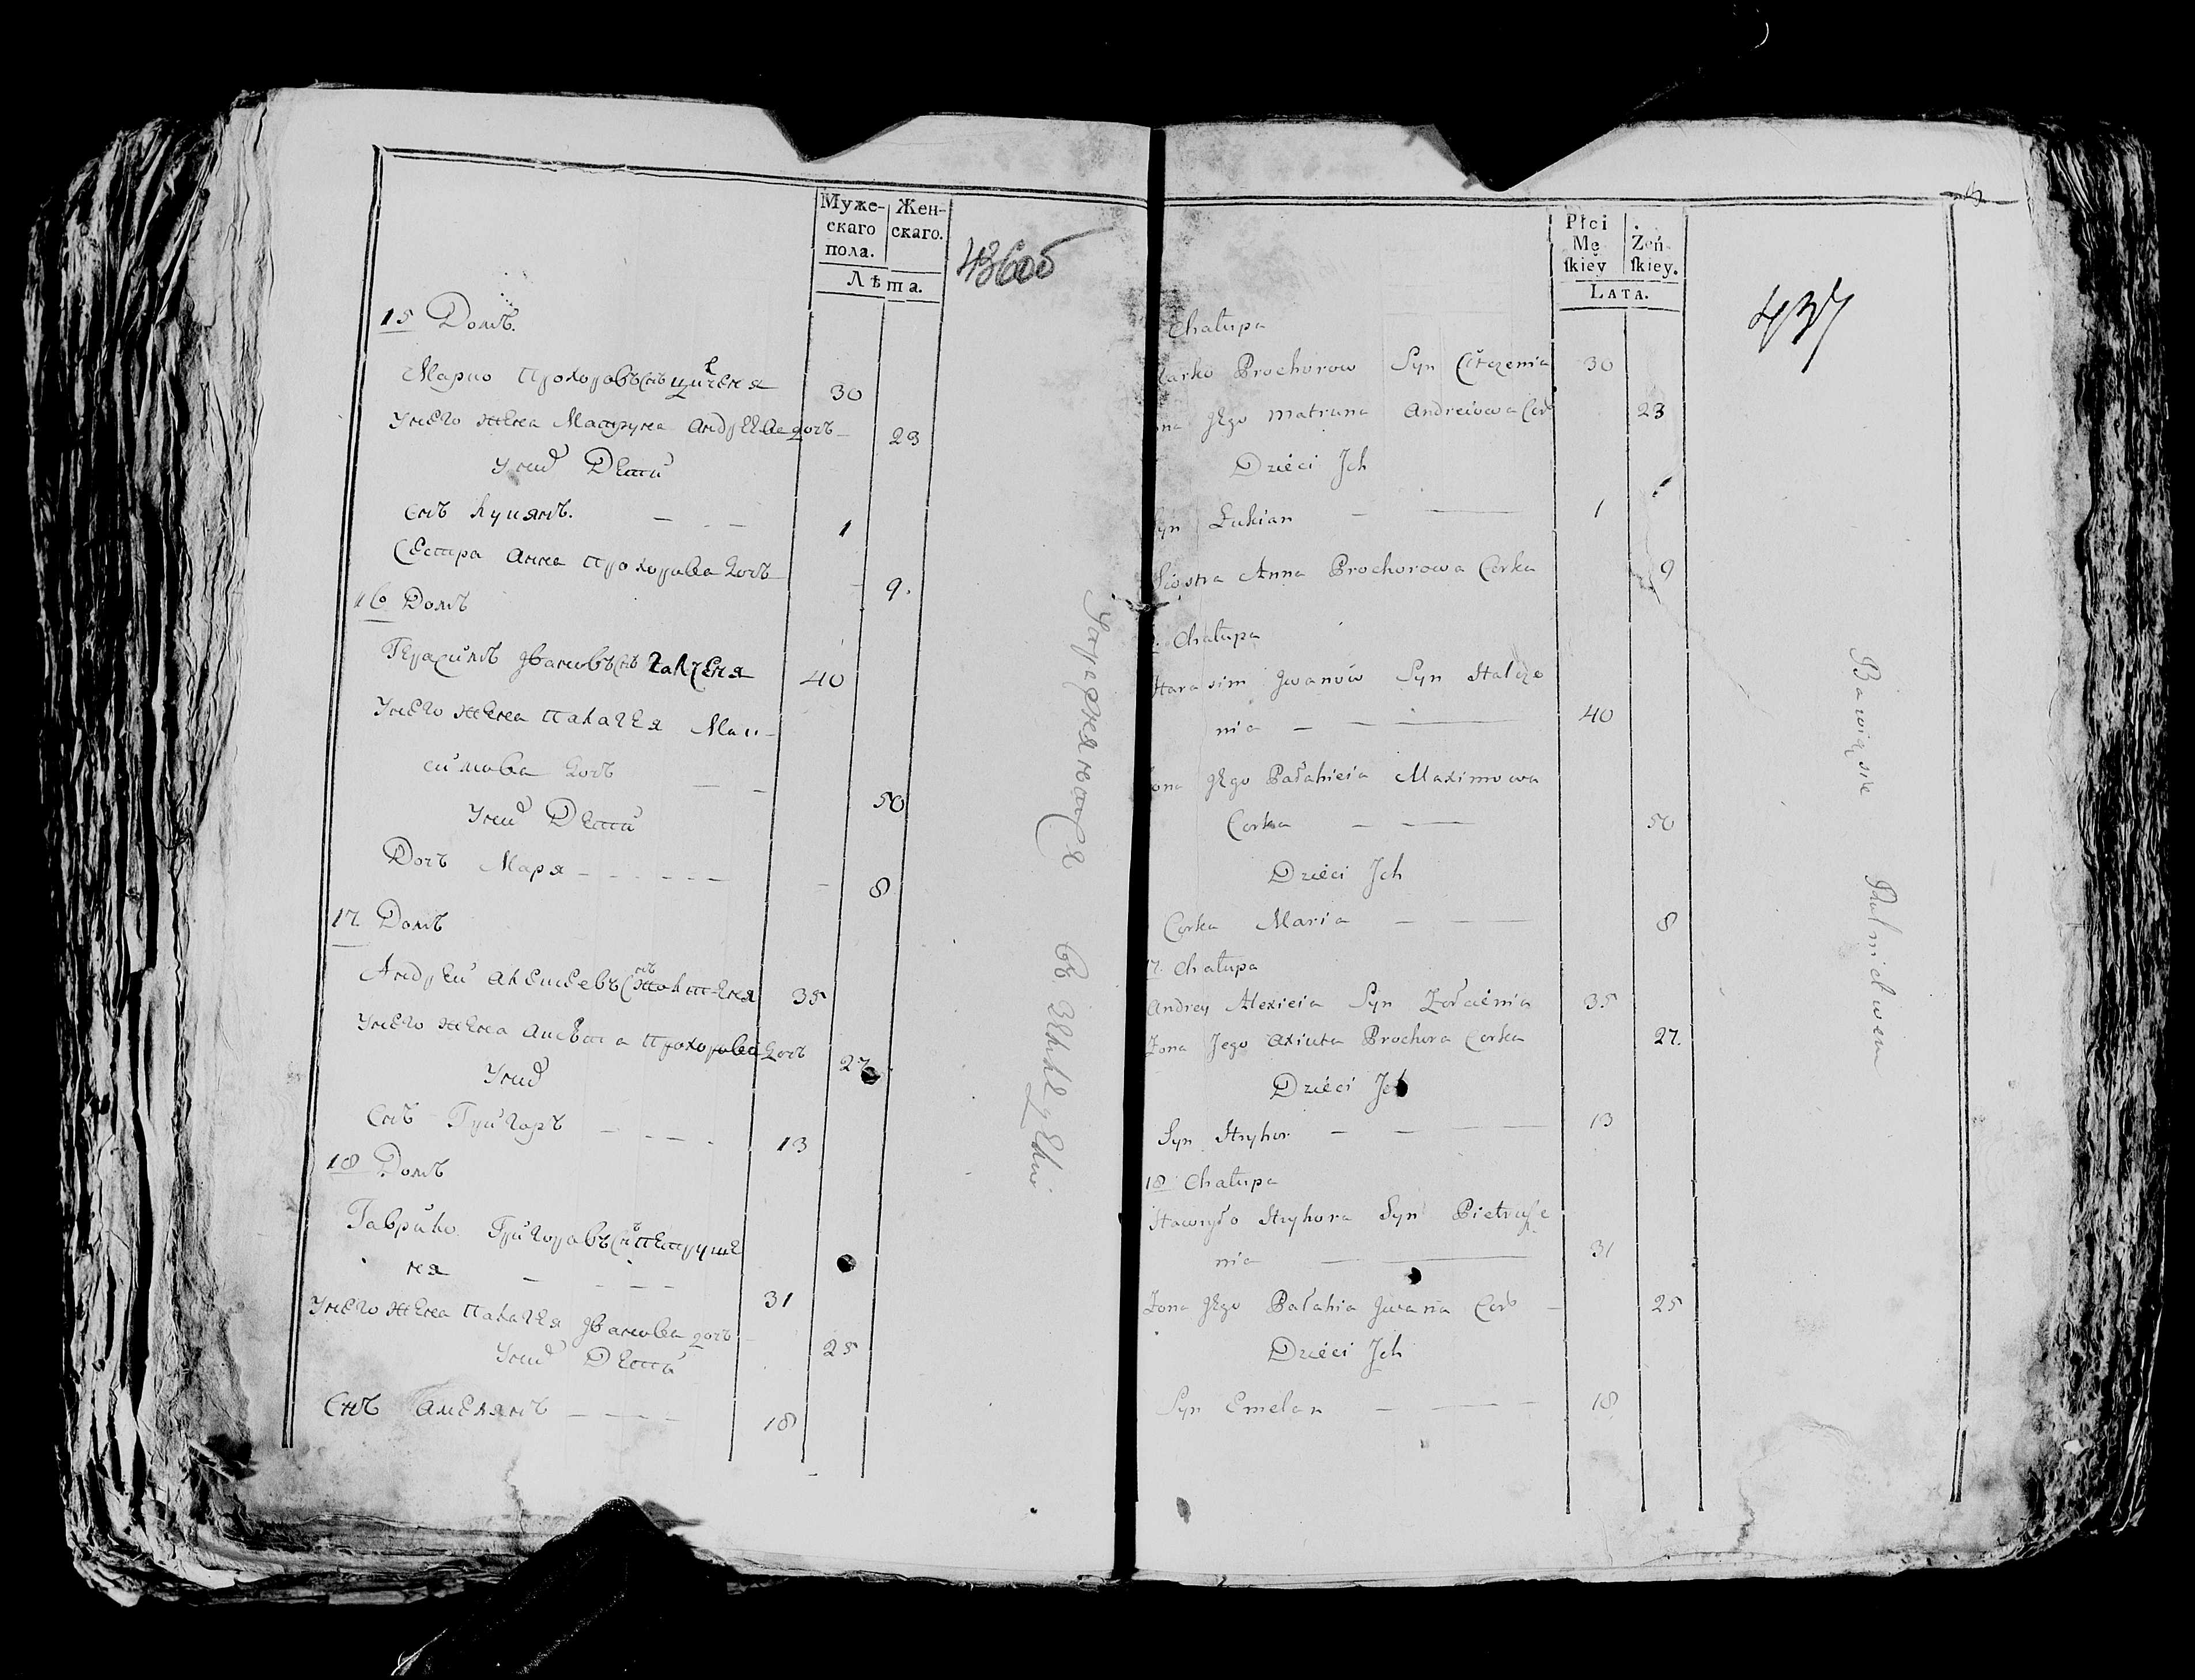 Муже-
скаго
пола.
Жен-
скаго.
Лѣта.
436об
15 Домъ.
Марко Прохоровъ снъ
30
У него жена Матруна Андреева дочъ
23
У них Дети
Снъ Лукянъ.
1
Сестра Анна Прохорова дочъ
9.
16 Домъ
Герасимъ Ивановъ снъ Галченя
40
У него жена Палагея Мак-
симова дочъ
50
У них Дети
Дочъ Маря
8
17 Домъ
Андрей Алексеевъ снъ Жолтеня
35
У него жена Прохорова дочъ
27
У них
Снъ Григоръ
13
18 Домъ
Гаврило Григоровъ снъ Петруше
ня
31
У него жена Палагея Иванова дочъ
25
У них Дети
Снъ Амелянъ
18
Упражняютса
въ Земледелии
Płci
Mę
skiey
Żeń-
skiey.
LATA.
437
Chałupa
arko Prochorow Syn
30
na Jego Matruna Andreiowa Cor
23
Dzieci Jch
Syn Łukian
1
Siostra Anna Prochorowa Corka
9
Chałupa
Harasim Jwanów Syn Halcze
nia
40
ona Jego Pałahieia Maximowa
Corka
50
Dzieci Jch
Corka Maria
8
17. Chałupa
Andrey Alexieia Syn Żołcienia
35
Żona Jego Axiuta Prochora Corka
27.
Dzieci Jch
Syn Hryhor
13
18 Chałupa
Hawryło Hryhora Syn Pietrusze
nia
31
Żona Jego Pałahia Jwana Cor
25
Dzieci Jch
Syn Emelan
18
Bawią sie
Rolnictwem